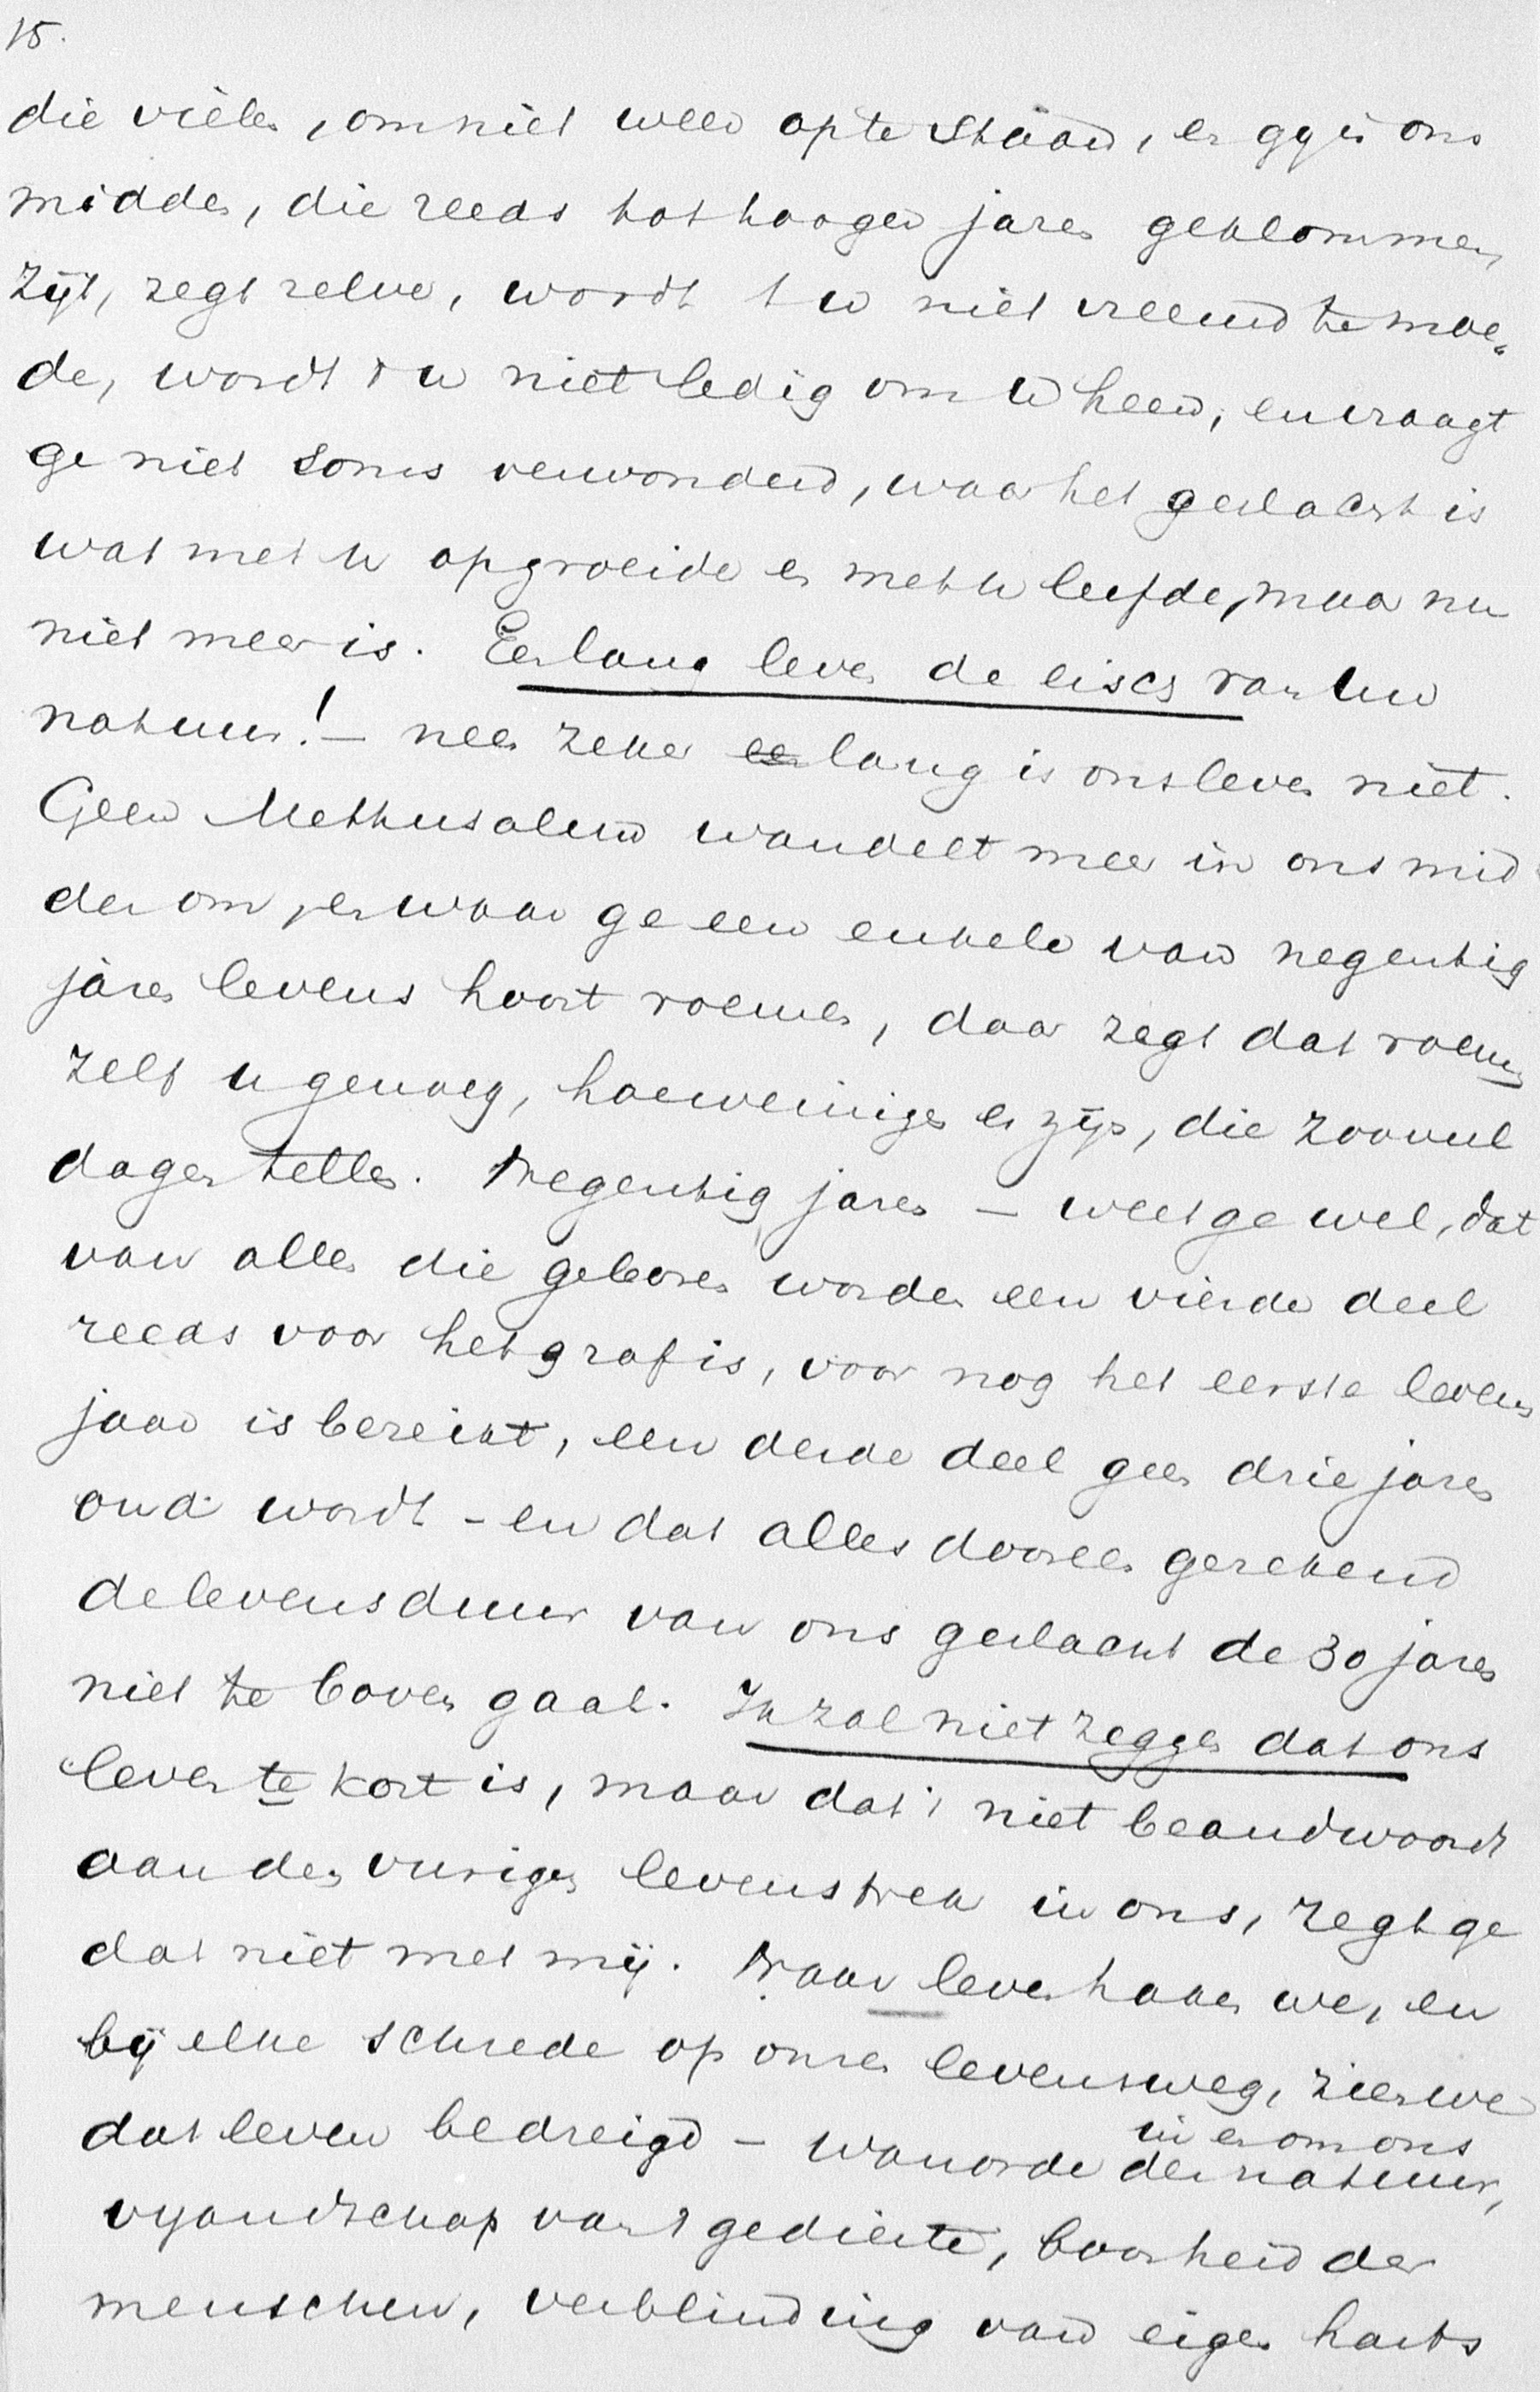 15.
die vielen, om niet weer op te staan, en gij in ons
midden, die reeds tot hoogen jaren geklommen
zijt, zegt zelve, wordt 't u niet vreemd te moe-
de, wordt 't u niet ledig om U heen, en vraagt
ge niet soms verwonderd, waar het geslacht is
wat met U opgroeide en met U leefde, maar nu
niet meer is. Een lang leven de eisch van Uw
natuur! — neen zeker een lang is ons leven niet.
Geen Methusalem wandelt meer in ons mid-
den om, en waar ge een enkele van negentig
jaren levens hoort roemen, daar zegt dat roemen
zelf u genoeg, hoe weinigen er zijn, die zooveel
dagen tellen. Negentig jaren — weet ge wel, dat
van allen die geboren worden een vierde deel
reeds voor het graf is, voor nog het eerste levens
jaar is bereikt, een derde deel geen drie jaren
oud wordt - en dat alles dooreen gerekend
de levensduur van ons geslacht de 30 jaren
niet te boven gaat. Ik zal niet zeggen dat ons
leven te kort is, maar dat 't niet beandwoordt
aan den vurigen levenstrek in ons, zegt ge
dat niet met mij. Naar leven haken we, en
bij elke schrede op onzen levensweg, zien we
dat leven bedreigd — wanorde in en om ons der natuur,
vijandschap van 't gedierte, boosheid der
menschen, verblinding van eigen harts